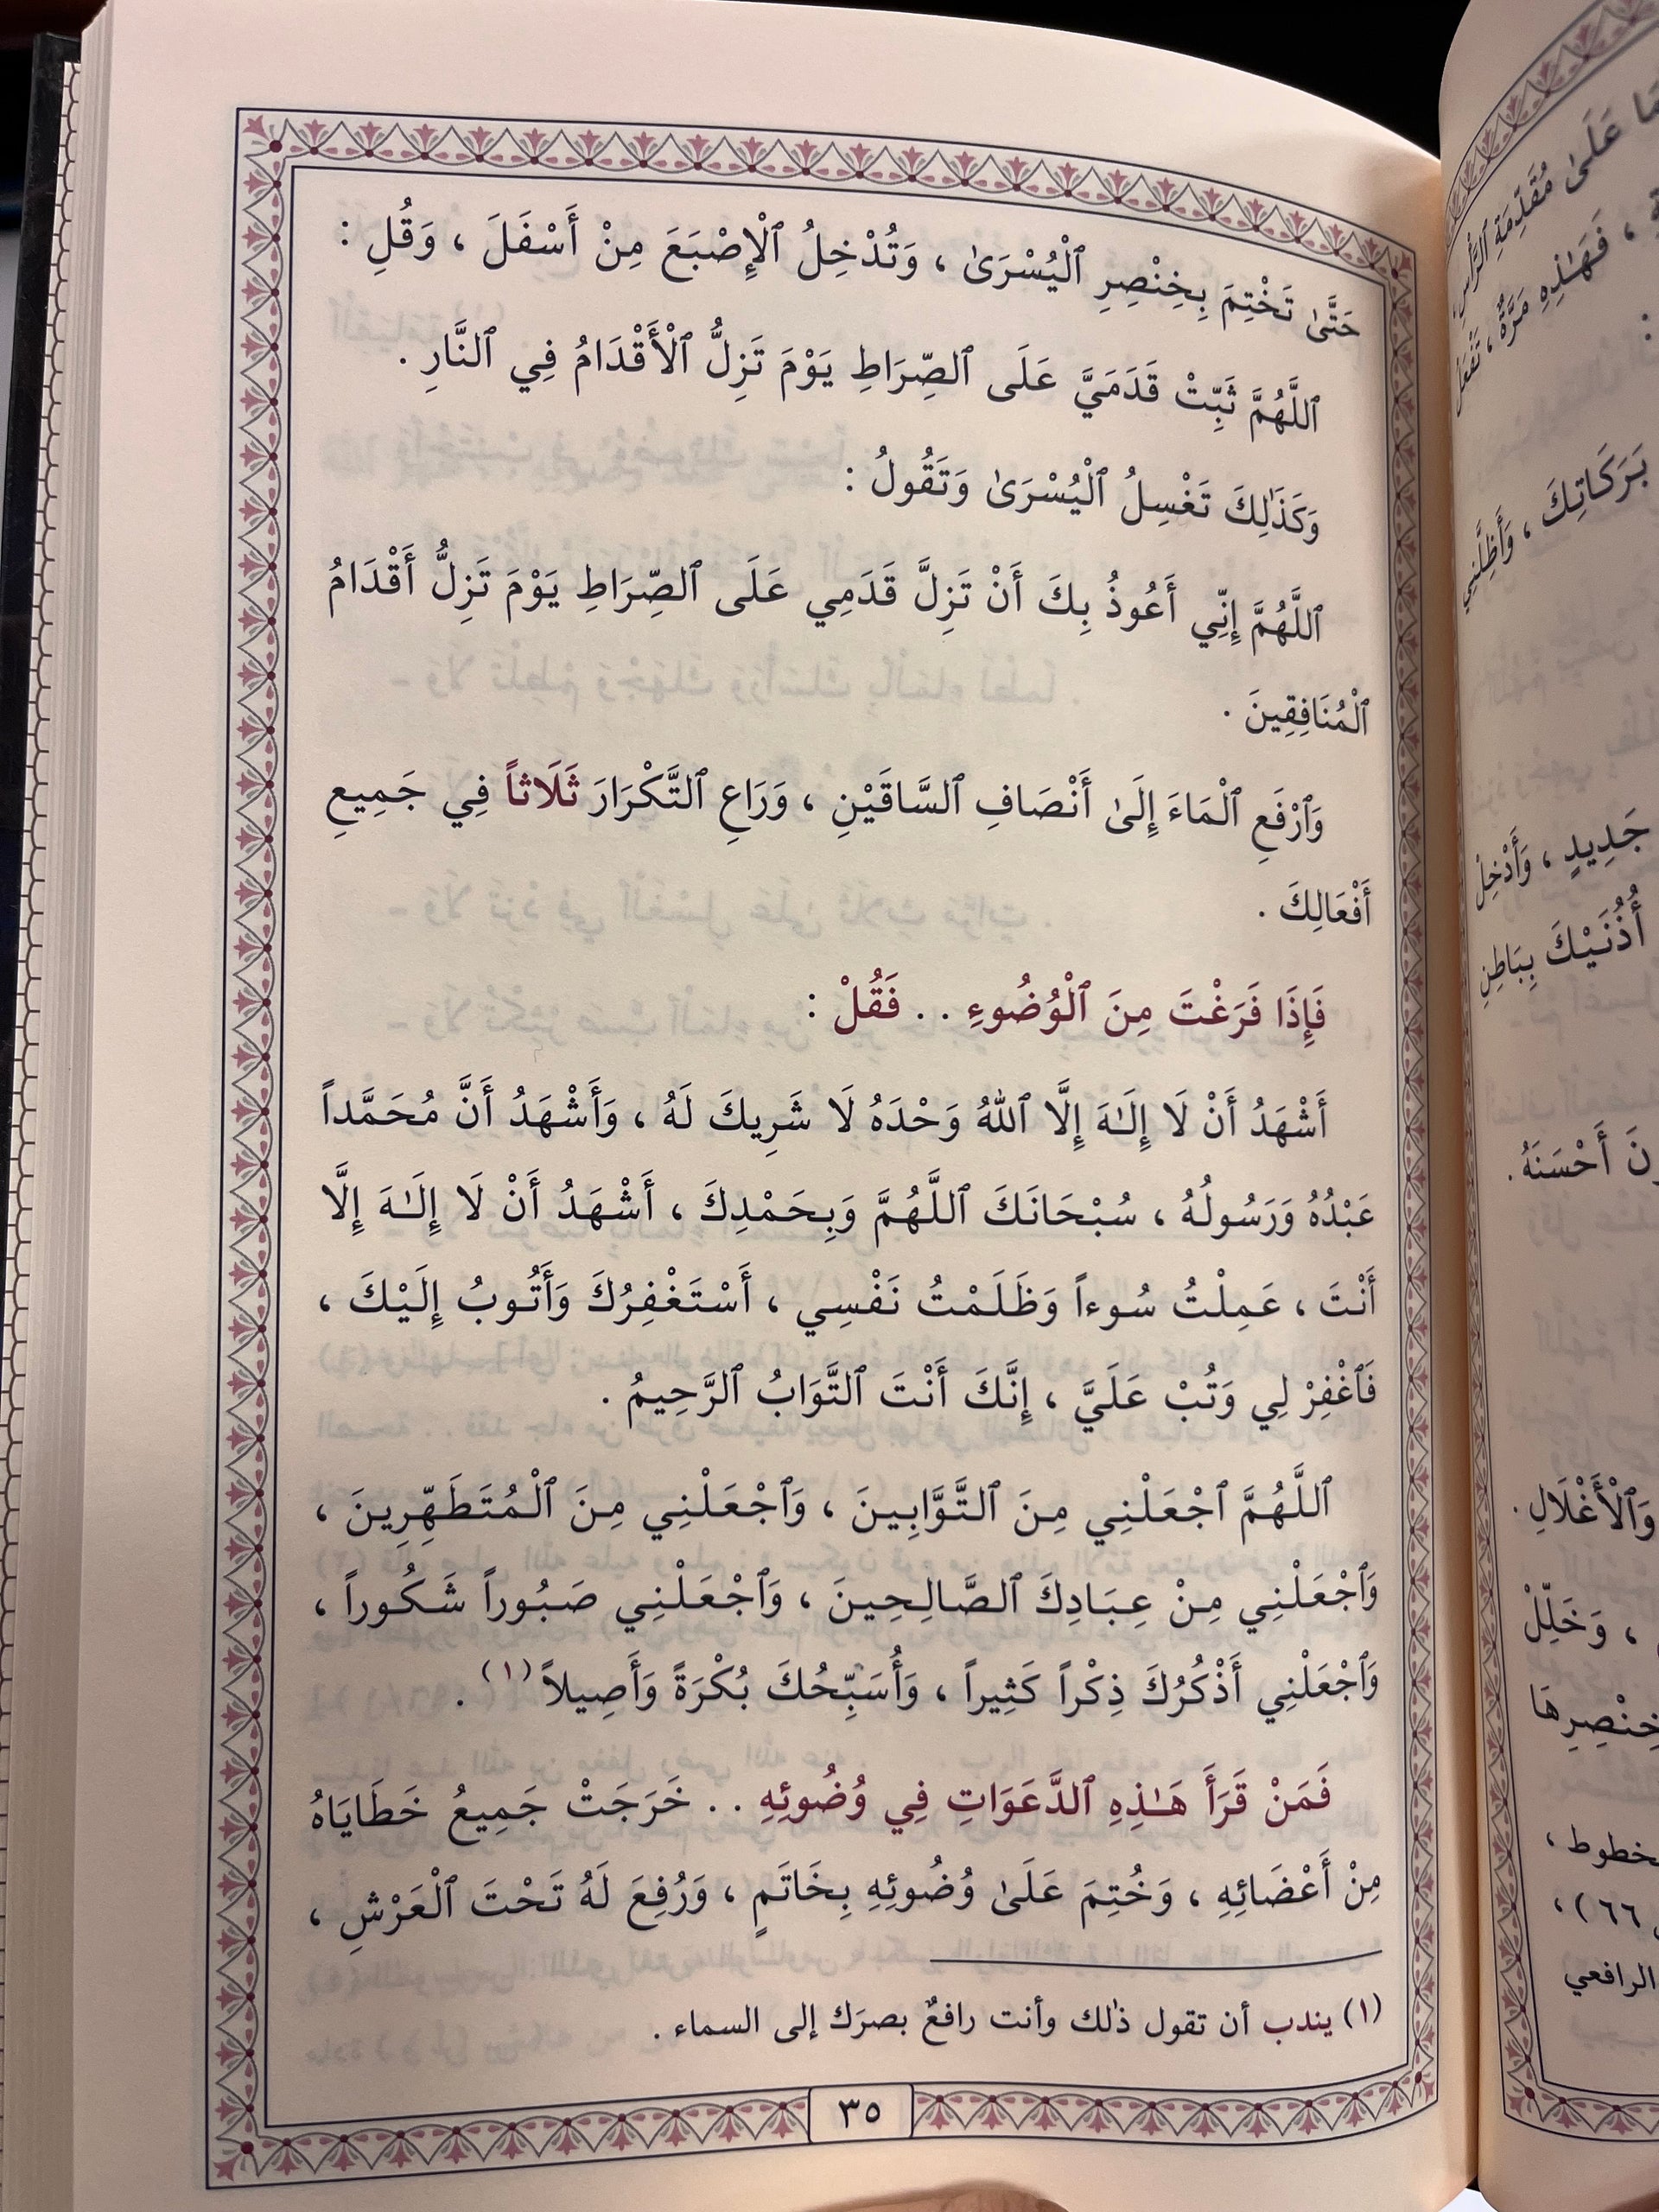 حَتَّىٰ تَخْتِمَ بِخِنْصِرِ ٱلْيُسْرَىٰ ، وَتُدْخِلُ ٱلْإِصْبَعَ مِنْ أَسْفَلَ ، وَقُلِ :
ٱللَّهُمَّ ثَبِّتْ قَدَمَيَّ عَلَى ٱلصِّرَاطِ يَوْمَ تَزِلُّ ٱلْأَقْدَامُ فِي ٱلنَّارِ .
وَكَذَٰلِكَ تَغْسِلُ ٱلْيُسْرَىٰ وَتَقُولُ :
ٱللَّهُمَّ إِنِّي أَعُوذُ بِكَ أَنْ تَزِلَّ قَدَمِي عَلَى ٱلصِّرَاطِ يَوْمَ تَزِلُّ أَقْدَامُ
ٱلْمُنَافِقِينَ .
وَٱرْفَعِ ٱلْمَاءَ إِلَىٰ أَنْصَافِ ٱلسَّاقَيْنِ ، وَرَاعِ ٱلتَّكْرَارَ ثَلَاثاً فِي جَمِيعِ
أَفْعَالِكَ .
فَإِذَا فَرَغْتَ مِنَ ٱلْوُضُوءِ . . فَقُلْ :
أَشْهَدُ أَنْ لَا إِلَـٰهَ إِلَّا ٱللهُ وَحْدَهُ لَا شَرِيكَ لَهُ ، وَأَشْهَدُ أَنَّ مُحَمَّداً
عَبْدُهُ وَرَسُولُهُ ، سُبْحَانَكَ ٱللَّهُمَّ وَبِحَمْدِكَ ، أَشْهَدُ أَنْ لَا إِلَـٰهَ إِلَّا
أَنْتَ ، عَمِلْتُ سُوءاً وَظَلَمْتُ نَفْسِي ، أَسْتَغْفِرُكَ وَأَتُوبُ إِلَيْكَ ،
فَٱغْفِرْ لِي وَتُبْ عَلَيَّ ، إِنَّكَ أَنْتَ ٱلتَّوَابُ ٱلرَّحِيمُ .
ٱللَّهُمَّ ٱجْعَلْنِي مِنَ ٱلتَّوَّابِينَ ، وَٱجْعَلْنِي مِنَ ٱلْمُتَطَهِّرِينَ ،
وَٱجْعَلْنِي مِنْ عِبَادِكَ ٱلصَّالِحِينَ ، وَٱجْعَلْنِي صَبُوراً شَكُوراً ،
وَٱجْعَلْنِي أَذْكُرُكَ ذِكْراً كَثِيراً ، وَأُسَبِّحُكَ بُكْرَةً وَأَصِيلاً (١) .
فَمَنْ قَرَأَ هَـٰذِهِ ٱلدَّعَوَاتِ فِي وُضُوئِهِ . . خَرَجَتْ جَمِيعُ خَطَايَاهُ
مِنْ أَعْضَائِهِ ، وَخُتِمَ عَلَىٰ وُضُوئِهِ بِخَاتَمٍ ، وَرُفِعَ لَهُ تَحْتَ ٱلْعَرْشِ ،
(١) يندب أن تقول ذٰلك وأنت رافعٌ بصرَك إلى السماء .
٣٥
عَلَىٰ مُقَدِّمَةِ ٱلرَّأْسِ
، فَهَـٰذِهِ مَرَّةٌ ،
بَرَكَاتِكَ ، وَأَظِلَّنِي
جَدِيدٍ ، وَأَدْخِلْ
أُذُنَيْكَ بِبَاطِنِ
أَحْسَنَهُ .
وَٱلْأَغْلَالِ .
، وَخَلِّلْ
٦٦ ) ،
الرافعي